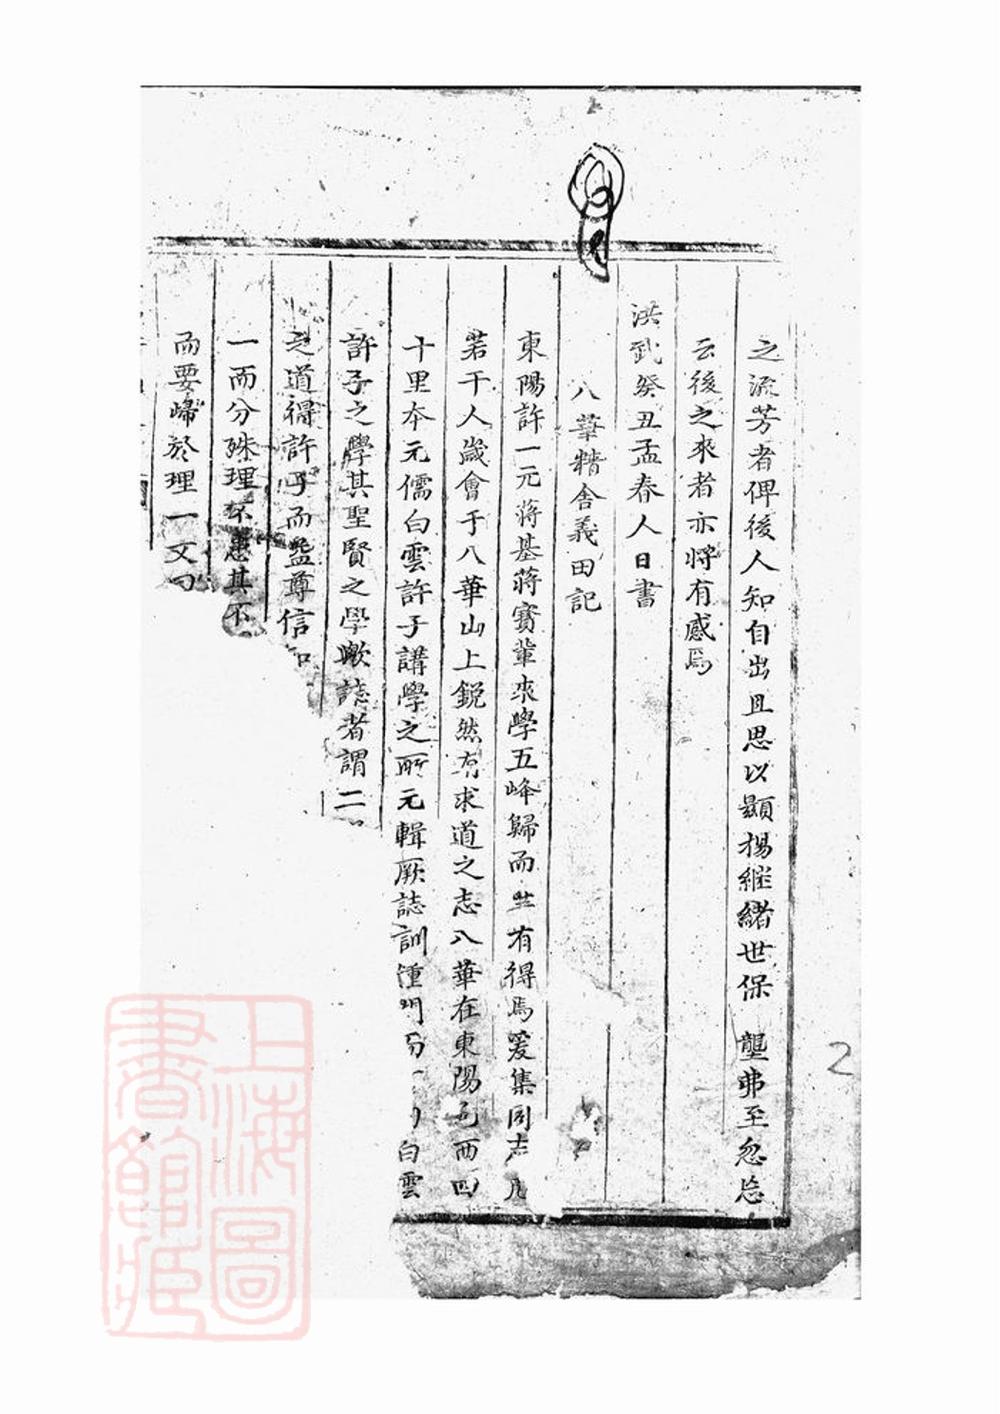 之流芳者俾後人知自出且思以顯揚繼緒世保 壟弗至忽怠
云後之來者亦將有感焉
洪武癸丑孟春人日書
八華精舍義田記
東陽許一元蔣基蔣寶輩來學五峰歸而 有得焉爰集同志凡
若干人歲會于八華山上銳然有求道之志八華在東陽邑西四
十里本元儒白雲許子講學之所元輯厥誌訓 白雲
許子之學其聖賢之學歟誌者謂二
之道得許子而益尊信
一而分殊理不患其不
而要歸於理一又
2
上海圖書館藏